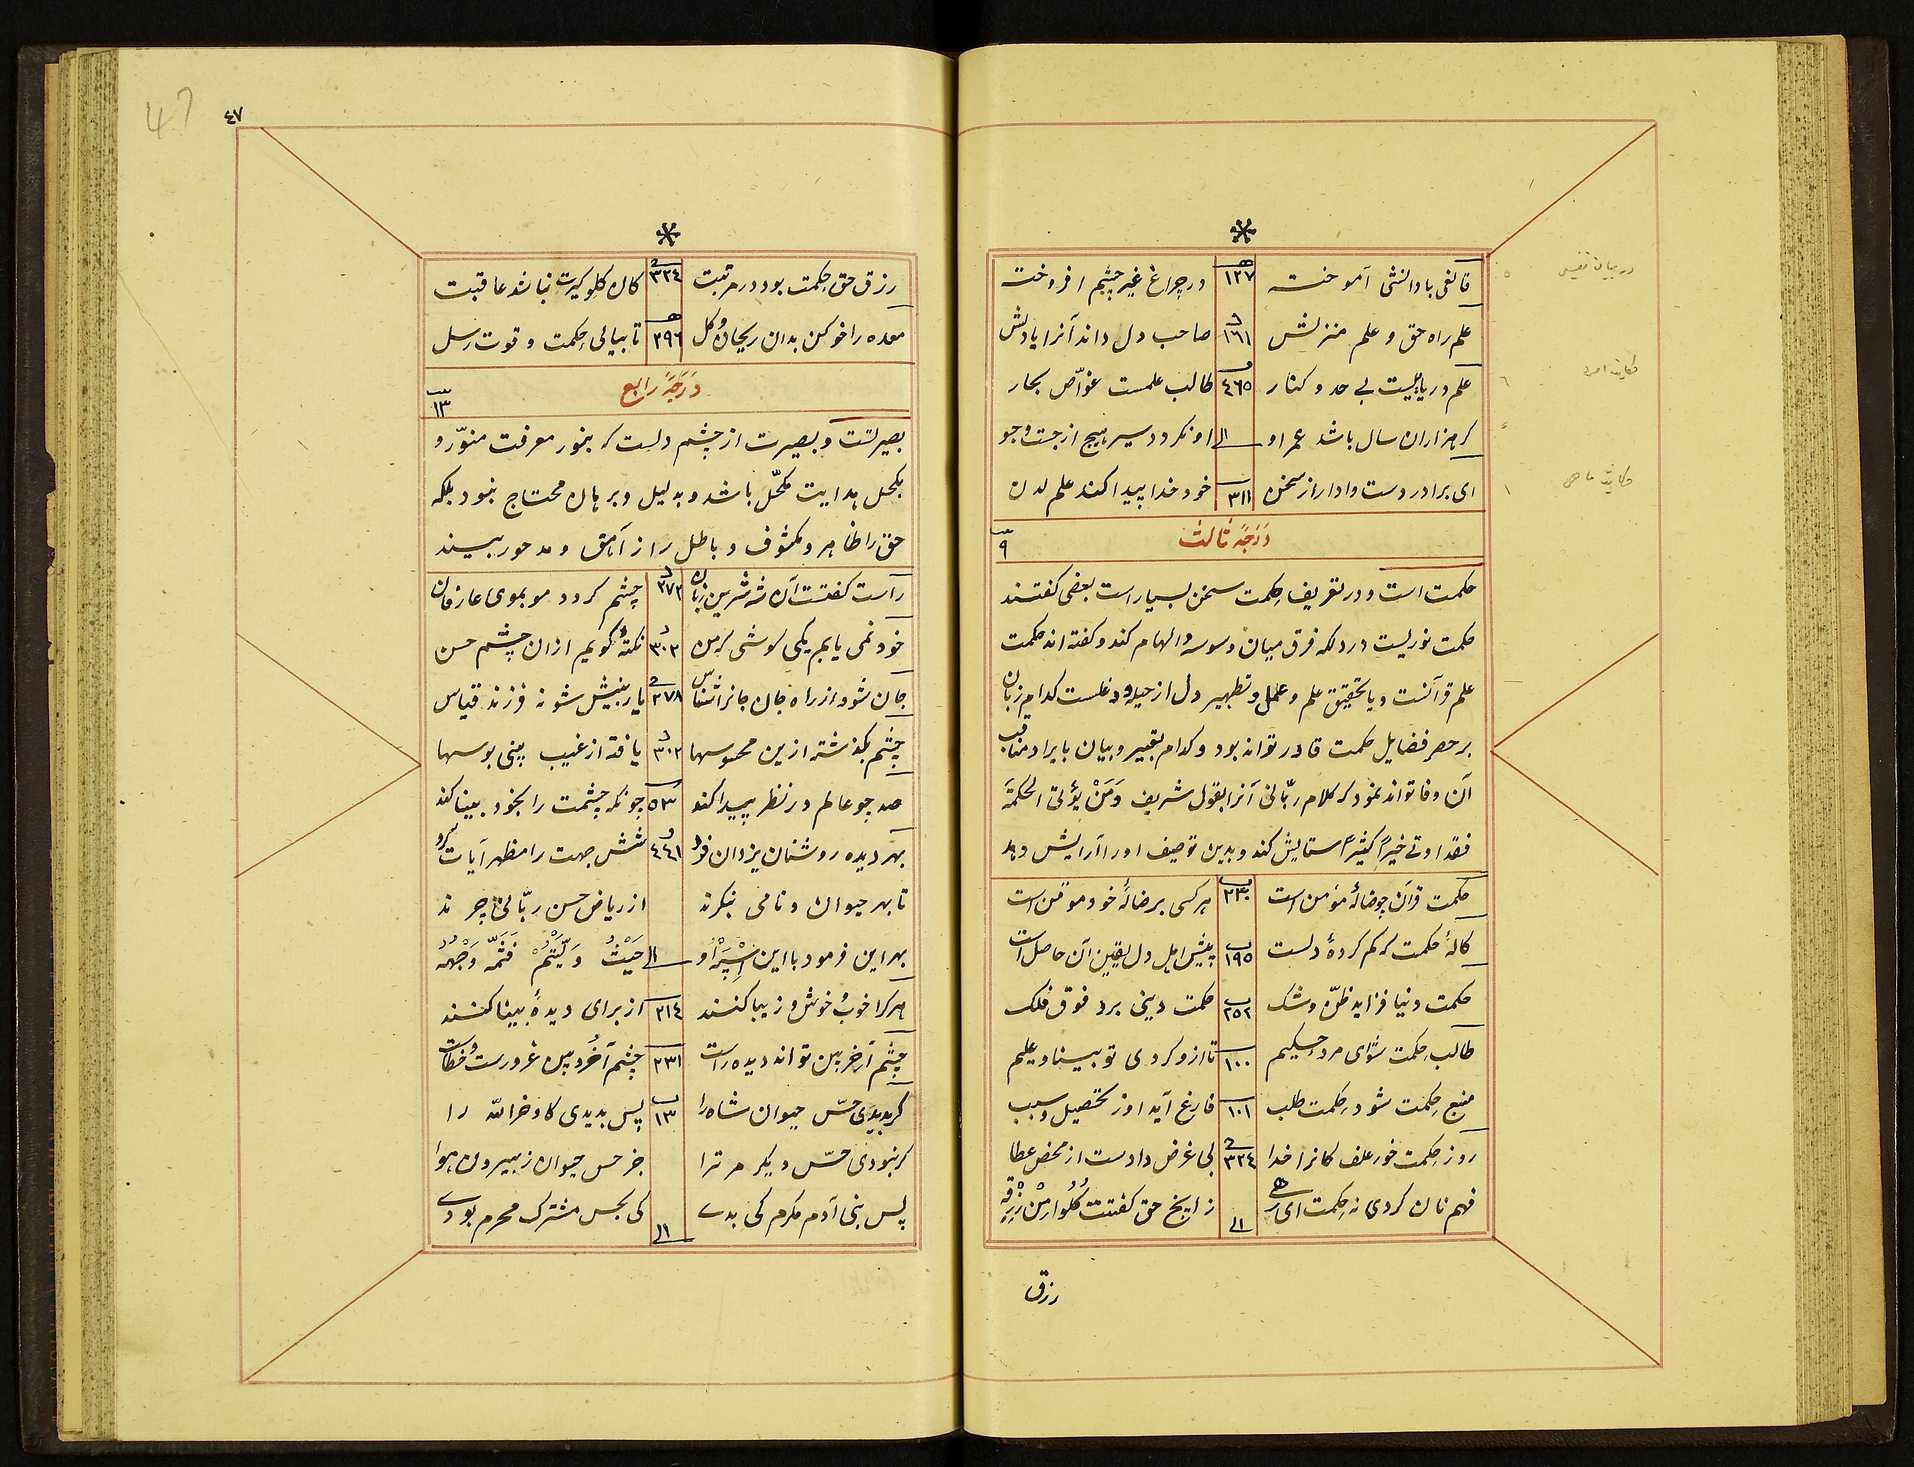 قالفی با دانشی آموخته ١٢٧ در چراغ غیر چشم افروخته
علم راه حق و علم منزلش ١٦١ صاحب دل داند آنرا یا دلش
علم دریاییست بی حد و کنار ٤٦٥ طالب علمست غوّاص بحار
کر هزاران سال باشد عمر او الی او نکردد سیر هیچ از جست وجو
ای برادر دست وادار از سخن ٣١١ خود خدا پیدا کند علم لدن
دَرَجَهٔ ثالث ٩
حکمت است و در تعریف حکمت سخن بسیار است بعضی کفتند
حکمت نوریست در دل که فرق میان وسوسه و الهام کند و کفته اند حکمت
علم قرآنست و یا تحقیق علم و عمل و تطهیر دل از حیله و دغلست کدام زبان
بر حصر فضایل حکمت قادر تواند بود و کدام تعبیر و بیان بایراد مناقب
آن وفا تواند نمود که کلام ربّانی آنرا بقول شریف وَمَنْ یؤتی الحکمَة
فقد اوتی خیراً کثیراً ستایش کند و بدین توصیف اورا آرایش دهد
حکمت قرآن چو ضالهٔ مؤمن است ٢٣٠ هر کسی بر ضالهٔ خود موقن است
کالهٔ حکمت که کم کردهٔ دلست ١٩٥ پیش اهل دل یقین آن حاصل است
حکمت دنیا فزاید ظنّ و شک ٢٥٢ حکمت دینی برد فوق فلک
طالب حکمت شو ای مرد حکیم ١٠٠ تا ازو کردی تو بینا و علیم
منبع حکمت شود حکمت طلب ١٠١ فارغ آید او ز تحصیل و سبب
روز حکمت خور علف کانرا خدا ٣٢٤ بی غرض دادست از محض عطا
فهم نان کردی نه حکمت ای رهی الی زانچ حق کفتت کُلُوا مِنْ رِزْقِهِ
رزق
٤٧
47
رزق حق حکمت بود در مرتبت ٣٢٤ کان کلو کیرت نباشد عاقبت
معده را خو کن بدان ریحان و کل ٣٩٦ تا بیابی حکمت و قوت رسل
دَرَجَهٔ رابع ١٣
بصیرتست و بصیرت از چشم دلست که بنور معرفت منوّر و
بکحل هدایت مکحّل باشد و بدلیل و برهان محتاج نبود بلکه
حق را ظاهر و مکشوف و باطل را زاهق و مدحور بیند
راست کفتست آن شه شیرین زبان ٣٧٢ چشم کردد مو بموی عارفان
خود نمی یابم یکی کوشی که من ٣٠٢ نکتهٔ کویم ازان چشم حسن
جان شو و از راه جان جانرا شناس ٢٧٨ یار بینش شو نه فرزند قیاس
چشم بکذشته ازین محسوسها ٣٠٢ یافته از غیب بینی بوسها
صد چو عالم در نظر پیدا کند ٥٣ چونکه چشمت را بخود بینا کند
بهر دیده روشنان یزدان فرد ٤٤١ شش جهت را مظهر آیات کرد
تا بهر حیوان و نامی بنکرند از ریاض حسن ربّانی چرند
بهر این فرمود با این اسپه او الی حَیْثُ وَلَّیْتُمْ فَثَمَّ وَجْهُهُ
هر کرا خوب و خوش و زیبا کنند ٢١٤ از برای دیدهٔ بینا کنند
چشم آخر بین تواند دید راست ٢٣١ چشم آخُر بین غرورست و خطاست
کر بدیدی حسّ حیوان شاه را ١٣ پس بدیدی کاو و خر الله را
کر نبودی حسّ دیکر مر ترا جز حس حیوان ز بیرون هوا
پس بنی آدم مکرم کی بدی الی کی بحس مشترک محرم بودی